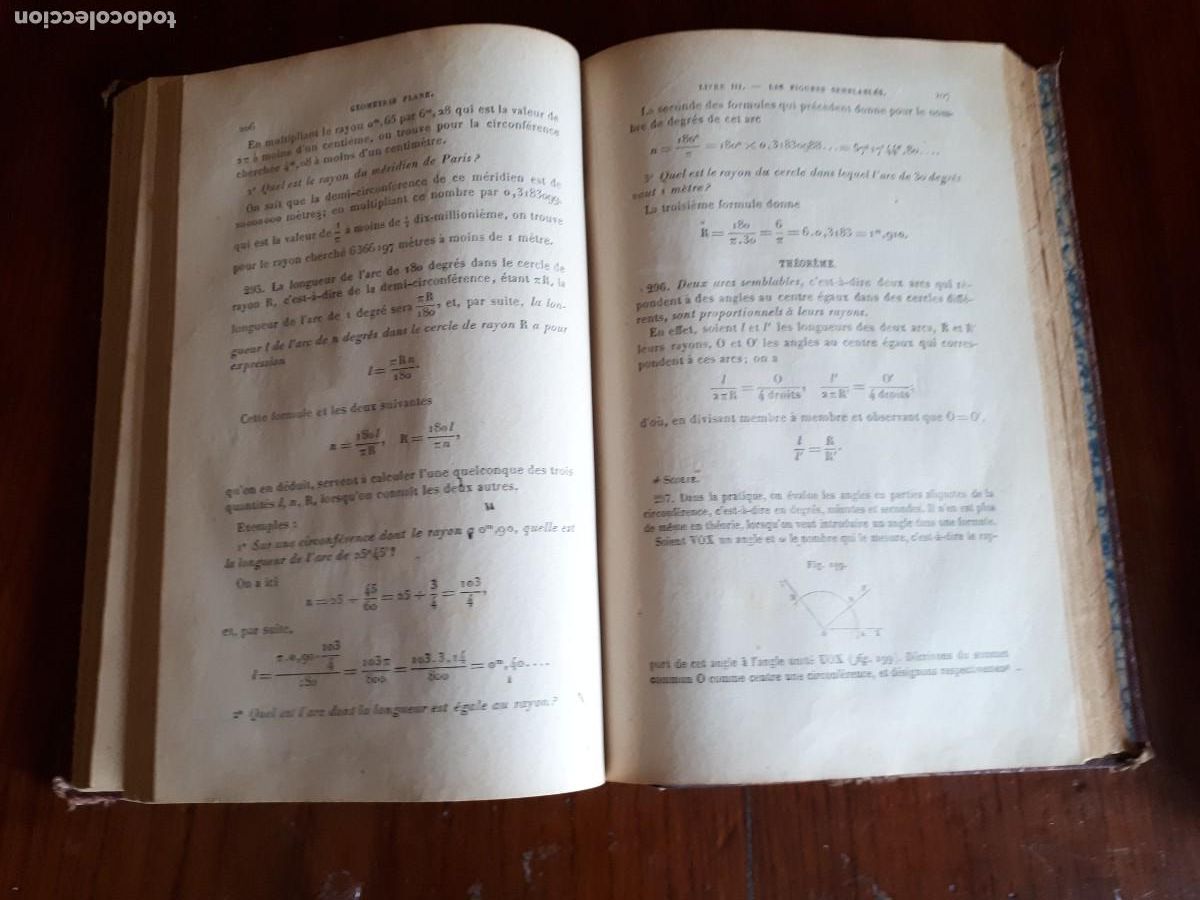 todocoleccion
206
GÉOMÉTRIE PLANE.
En multipliant le rayon 0ᵐ,65 par 6ᵐ,28 qui est la valeur de
2π à moins d'un centième, on trouve pour la circonférence
cherchée 4ᵐ,08 à moins d'un centimètre.
2° Quel est le rayon du méridien de Paris?
On sait que la demi-circonférence de ce méridien est de
20000000 mètres; en multipliant ce nombre par 0,3183099,
qui est la valeur de 1/π à moins de ½ dix-millionième, on trouve
pour le rayon cherché 6366197 mètres à moins de 1 mètre.
295. La longueur de l'arc de 180 degrés dans le cercle de
rayon R, c'est-à-dire de la demi-circonférence, étant πR, la
longueur de l'arc de 1 degré sera πR/180, et, par suite, la lon-
gueur l de l'arc de n degrés dans le cercle de rayon R a pour
expression
l = πRn/180.
Cette formule et les deux suivantes
n = 180l/πR, R = 180l/πn,
qu'on en déduit, servent à calculer l'une quelconque des trois
quantités l, n, R, lorsqu'on connaît les deux autres.
Exemples :
1° Sur une circonférence dont le rayon 0ᵐ,90, quelle est
la longueur de l'arc de 25°45'?
On a ici
n = 25 + 45/60 = 25 + 3/4 = 103/4,
et, par suite,
l = π.0,90.103/4 / 180 = 103π/800 = 103.3,14/800 = 0ᵐ,40....
2° Quel est l'arc dont la longueur est égale au rayon?
LIVRE III. — LES FIGURES SEMBLABLES.
207
La seconde des formules qui précèdent donne pour le nom-
bre de degrés de cet arc
n = 180°/π = 180° × 0,3183098... = 57°17'44",80....
3° Quel est le rayon du cercle dans lequel l'arc de 30 degrés
vaut 1 mètre?
La troisième formule donne
R = 180/π.30 = 6/π = 6.0,3183 = 1ᵐ,910.
THÉORÈME.
296. Deux arcs semblables, c'est-à-dire deux arcs qui ré-
pondent à des angles au centre égaux dans des cercles diffé-
rents, sont proportionnels à leurs rayons.
En effet, soient l et l' les longueurs des deux arcs, R et R'
leurs rayons, O et O' les angles au centre égaux qui corres-
pondent à ces arcs; on a
l/2πR = O/4 droits, l'/2πR' = O'/4 droits;
d'où, en divisant membre à membre et observant que O = O',
l/l' = R/R'.
SCOLIE.
297. Dans la pratique, on évalue les angles en parties aliquotes de la
circonférence, c'est-à-dire en degrés, minutes et secondes. Il n'en est plus
de même en théorie, lorsqu'on veut introduire un angle dans une formule.
Soient VOX un angle et ω le nombre qui le mesure, c'est-à-dire le rap-
Fig. 199.
port de cet angle à l'angle unité UOX (fig. 199). Décrivons du sommet
commun O comme centre une circonférence, et désignons respectivement